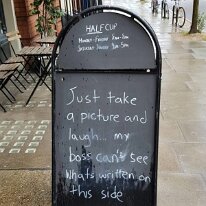 HALFCUP
Monday-Friday 8am-6pm
Saturday-Sunday 9am-5pm
Just take
a picture and
laugh... my
boss can't see
whats written on
this side